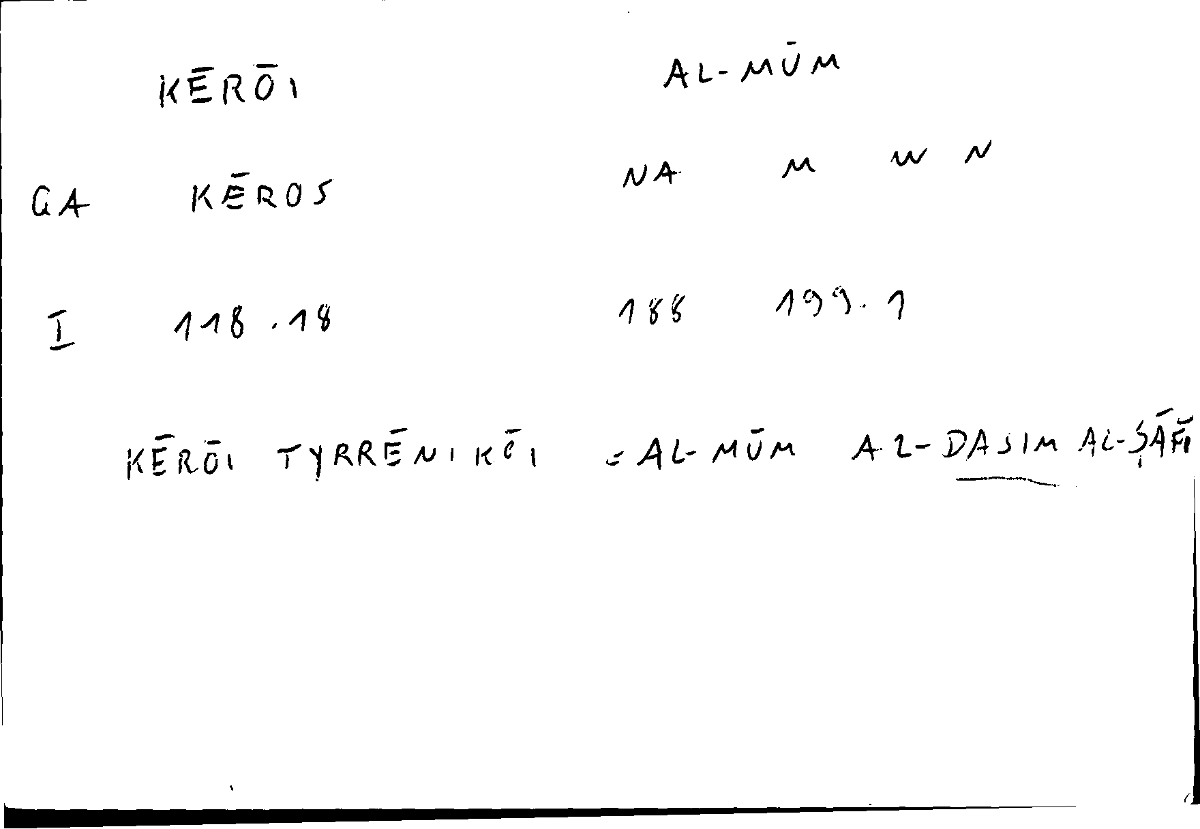 KĒRŌI AL-MŪM
GA KĒROS NA M W N
I 118.18 188 199.1
KĒRŌI TYRRĒNIKŌI = AL-MŪM AL-DASIM AL-ṢĀFĪ